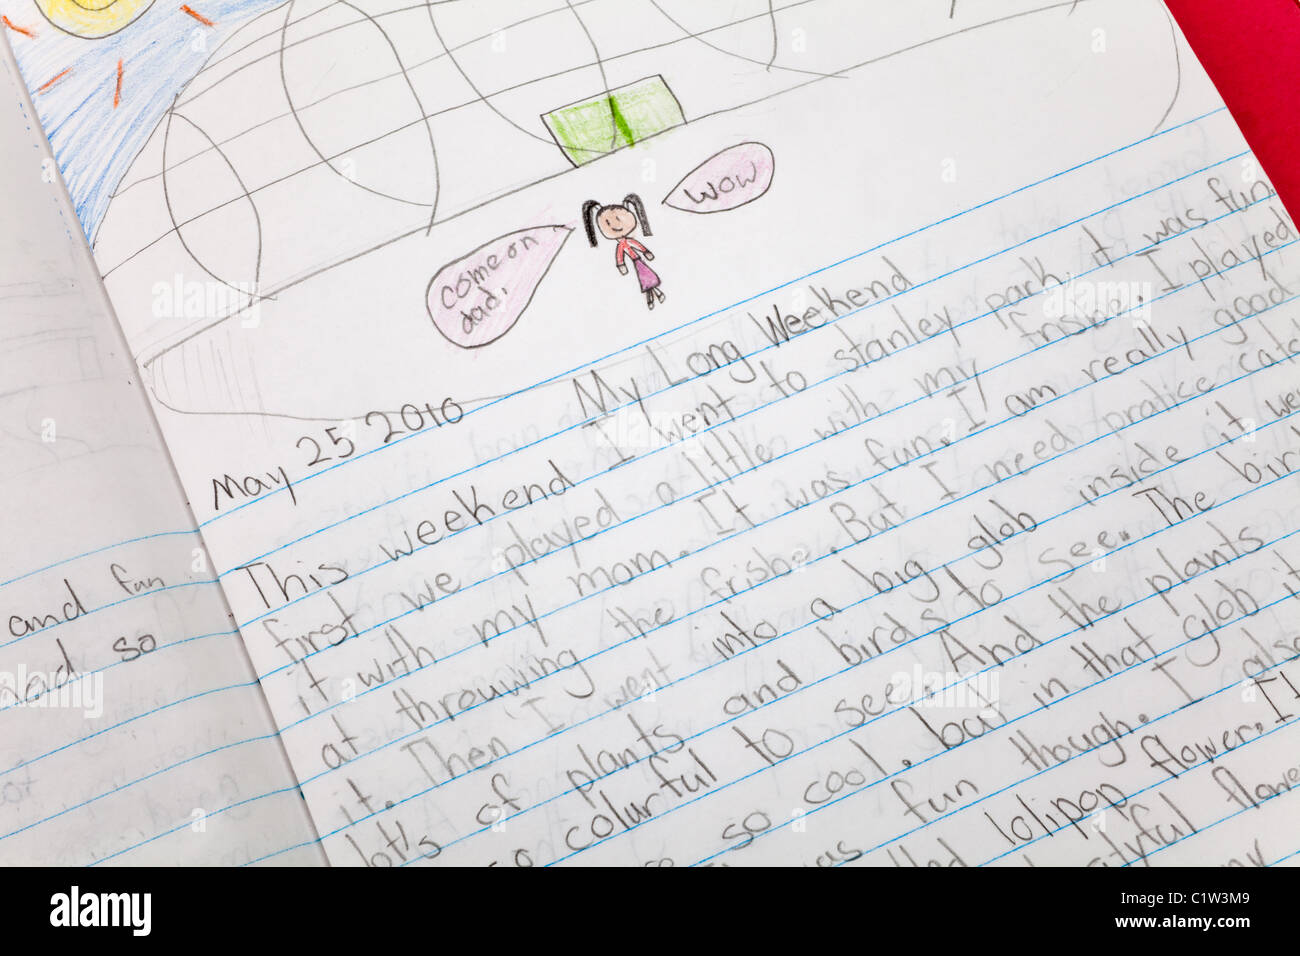 wow
come on
dad,
May 25 2010
My Long Weekend
This weekend I went to stanley park it was fun.
first we played a little with my frisbe. I played
it with my mom. It was fun. I am really good
at throuwing the frisbe. But I need pratice catc
it. Then I went into a big glob inside it wer
lot's of plants and birds to see. The bird
so colurful to see. And the plants
so cool. but in that glob it
was fun though. I also
lolipop flower. It
flowe
and fun
so
alamy
Image ID: C1W3M9
www.alamy.com